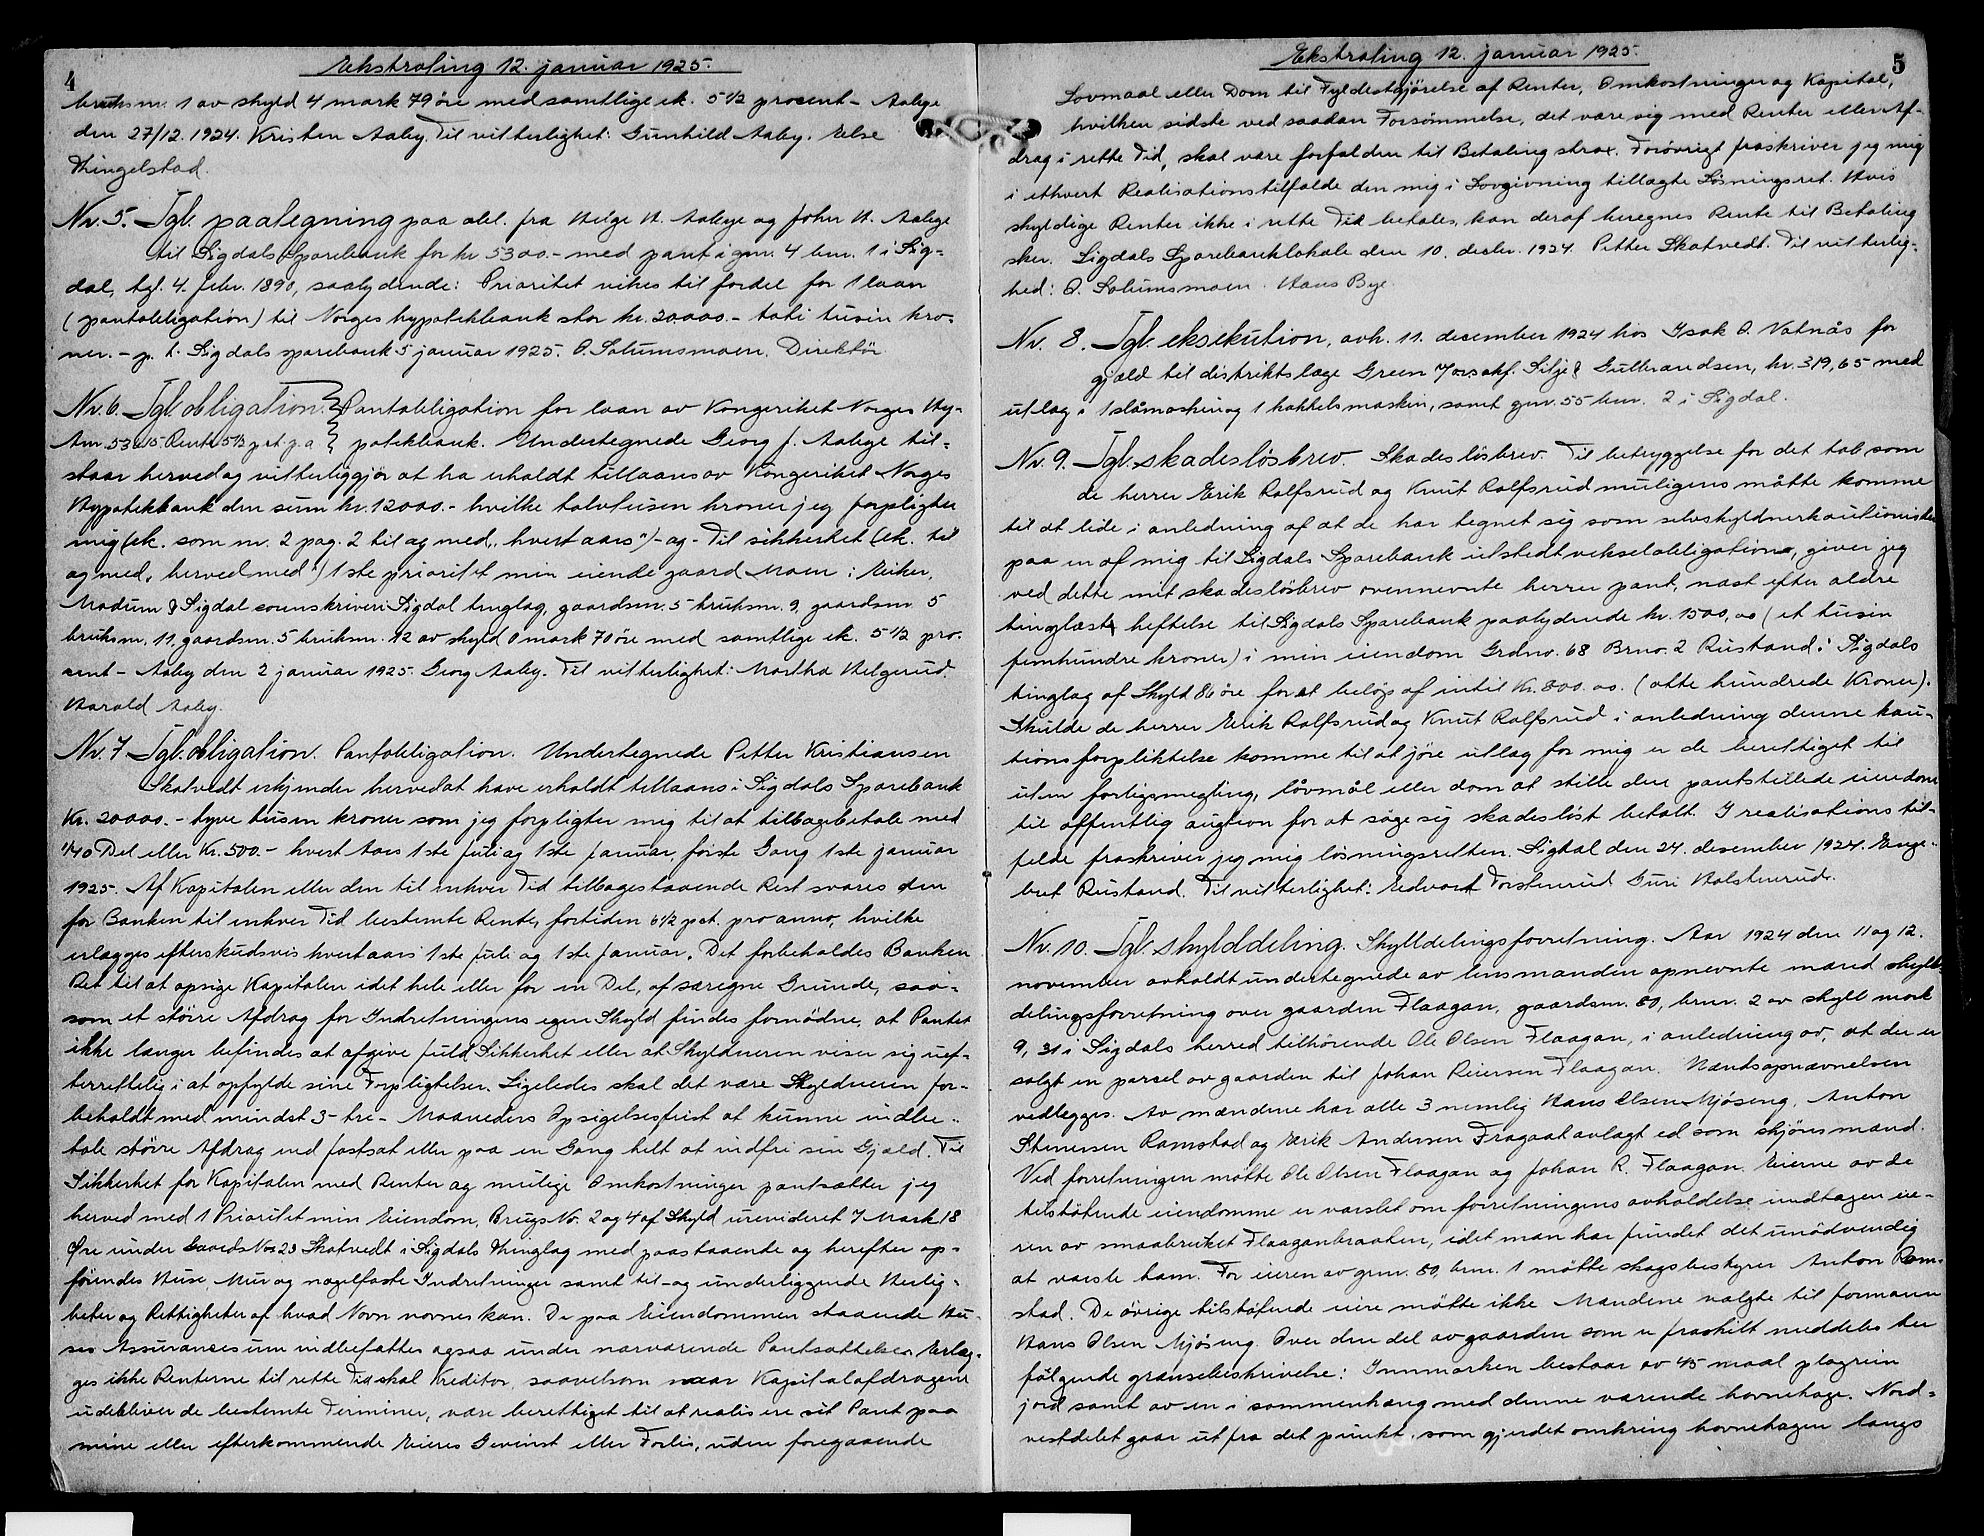 4
Ekstrating 12. januar 1925.
bruksnr. 1 av skyld 4 mark 79 øre med samtlige ek. 5 1/2 procent - Aabye
den 27/12. 1924. Kristen Aaby. Til vitterlighet: Gunhild Aaby. Else
Thingelstad.
Nr. 5. Tgl. paategning paa obl. fra Helge H. Aabye og John H. Aabye
til Sigdals Sparebank for kr 5300.- med pant i gnr. 4 bnr. 1 i Sig-
dal, tgl. 4. febr. 1890, saalydende: Prioritet vikes til fordel for 1 laan
(pantobligation) til Norges hypotekbank stor kr. 20.000.- toti tusin kro-
ner. - p. t. Sigdals sparebank 5 januar 1925. O. Solumsmoen. Direktør
Nr. 6. Tgl. obligation. Pantobligation for laan av Kongeriket Norges Hy-
Rente 5 1/2 pct. p. a potekbank. Undertegnede Georg J. Aabye til-
staar herved og vitterliggjør at ha erholdt tillaans av Kongeriket Norges
Hypotekbank den sum kr. 12000.- hvilke tolvtusen kroner jeg forpligter
mig (ek. som nr. 2 pag. 2 til og med "hvert aars") - og - Til sikkerhet (ek. til
og med "herved med") 1ste prioritet min eiende gaard Moen i Eiker,
Modum & Sigdal sorenskriveri Sigdal tinglag, gaardsnr. 5 bruksnr. 9, gaardsnr 5
bruksnr. 11, gaardsnr. 5 bruksnr. 12 av skyld 0 mark 70 øre med samtlige ek. 5 1/2 pro-
cent - Aaby den 2 januar 1925. Georg Aaby. Til vitterlighet: Martha Helgerud.
Harald Aaby.
Nr. 7 Tgl. obligation. Pantobligation. Undertegnede Petter Kristiansen
Skatvedt erkjender herved at have erholdt tillaans i Sigdals Sparebank
Kr. 20000.- tyve tusen kroner som jeg forpligter mig til at tilbagebetale med
1/40 Del eller Kr. 500.- hvert Aars 1ste Juli og 1ste Januar, første Gang 1ste januar
1925. Af Kapitalen eller den til enhver Tid tilbagestaaende Rest svares den
for Banken til enhver Tid bestemte Rente, fortiden 6 1/2 pct. pro anno, hvilke
erlægges efterskudsvis hvert aars 1ste Juli og 1ste Januar. Det forbeholdes Banken
Ret til at opsige Kapitalen i det hele eller for en Del, af særegne Grunde, saa-
som et større Afdrag for Indretningens egen Skyld findes fornødne, at Pantet
ikke længer befindes at afgive fuld Sikkerhet eller at Skyldneren viser sig uef-
terrettelig i at opfylde sine Forpligtelser. Ligeledes skal det være Skyldneren for-
beholdt med mindst 3 - tre - Maaneders Opsigelsesfrist at kunne indbe-
tale større Afdrag end fastsat eller paa en Gang helt at indfri sin Gjæld. Til
Sikkerhet for Kapitalen med Renter og mulige Omkostninger pantsætter jeg
herved med 1 Prioritet min Eiendom, Brugs No. 2 og 4 af Skyld urevideret 7 Mark 18
Øre under Gaards No. 23 Skatvedt i Sigdals Thinglag med paastaaende og herefter op-
førendes Huse, Mur og nagelfaste Indretninger samt til- og underliggende Herlig-
heter og Rettigheter af hvad Navn nævnes kan. De paa Eiendommen staaende Hu-
ses Assurancesum indbefattes ogsaa under nærværende Pantsættelse. Erlæg-
ges ikke Renterne til rette Tid skal Kreditor, saavelsom naar Kapitalafdragene
udebliver de bestemte Terminer, være berettiget til at realisere sit Pant paa
mine eller efterkommende Eieres Gevinst eller Forlis, uden foregaaende
5
Ekstrating 12. januar 1925.
Lovmaal eller Dom til Fyldestgjørelse af Renter, Omkostninger og Kapital,
hvilken sidste ved saadan Forsømmelse, det være sig med Renter eller Af-
drag i rette Tid, skal være forfalden til Betaling strax. Forøvrigt fraskriver jeg mig
i ethvert Realisationstilfælde den mig i Lovgivning tillagte Løsningsret. Hvis
skyldige Renter ikke i rette Tid betales, kan deraf beregnes Rente til Betaling
sker. Sigdals Sparebanklokale den 10. decbr. 1924. Petter Skatvedt. Til vitterlig-
hed: O. Solumsmoen. Hans Bye.
Nr. 8. Tgl. eksekution, avh. 11. december 1924 hos Isak O. Vatnås for
gjæld til distriktslæge Green 7orsakf. Silje & Gulbrandsen, kr. 319,65 med
utlæg i 1 slåmaskin og 1 hakkelsmaskin, samt gnr. 55 bnr. 2 i Sigdal.
Nr. 9. Tgl. skadesløsbrev. Skadesløsbrev. Til betryggelse for det tab som
de herrer Erik Rolfsrud og Knut Rolfsrud muligens måtte komme
til at lide i anledning af at de har tegnet sig som selvskyldnerkautionister
paa en af mig til Sigdals Sparebank utstedt vekselobligation, giver jeg
ved dette mit skadesløsbrev ovennevnte herrer pant, næst efter ældre
tinglæst heftelse til Sigdals Sparebank paalydende kr. 1500,oo (et tusin
femhundre kroner) i min eiendom Grdno. 68 Brno. 2 Rustand i Sigdals
tinglag af Skyld 86 øre for et beløp af intil Kr. 800.oo. (otte hundrede Kroner).
Skulde de herrer Erik Rolfsrud og Knut Rolfsrud i anledning denne kau-
tionsforpliktelse komme til at jøre utlæg for mig er de berettiget til
uten forligsmegling, låvmål eller dom at stille den pantstillede eiendom
til offentlig auction for at søge sig skadesløst betalt. I realisationstil-
felde fraskriver jeg mig løsningsretten. Sigdal den 24. desember 1924. Enge-
bret Rustand. Til vitterlighet: Edvart Torstenrud Guri Holstenrud.
Nr. 10. Tgl. skylddeling. Skylldelingsforretning. Aar 1924 den 11 og 12.
november avholdt undertegnede av lensmanden opnevnte mænd skyld-
delingsforretning over gaarden Flaagan, gaardsnr. 80, brnr. 2 av skyll mark
9,31 i Sigdals herred tilhørende Ole Olsen Flaagan, i anledning av, at der er
solgt en parcel av gaarden til Johan Reiersen Flaagan. Mæntsopnævnelsen
vedlegges. Av mændene har alle 3 nemlig Hans Olsen Mjøseng, Anton
Stenersen Ramstad og Erik Andersen Fragaat avlagt ed som skjønsmænd.
Ved forretningen møtte Ole Olsen Flaagan og Johan R. Flaagan. Eierne av de
tilstøtende eiendomme er varslet om forretningens avholdelse undtagen eie-
ren av smaabruket Flaaganbraaten, idet man har fundet det unødvendig
at varsle ham. For eieren av gnr. 80, bnr. 1 møtte skogsbestyrer Anton Ram-
stad. De øvrige tilstøtende eiere møtte ikke. Mændene valgte til formann
Hans Olsen Mjøseng. Over den del av gaarden som er fraskilt meddeles her
følgende grænsebeskrivelse: Innmarken bestaar av 45 maal plogrein
jord samt av en i sammenhæng med denne værende havnehage. Nord-
vestdelet gaar ut fra det punkt, som gjerdet omkring havnehagen langs